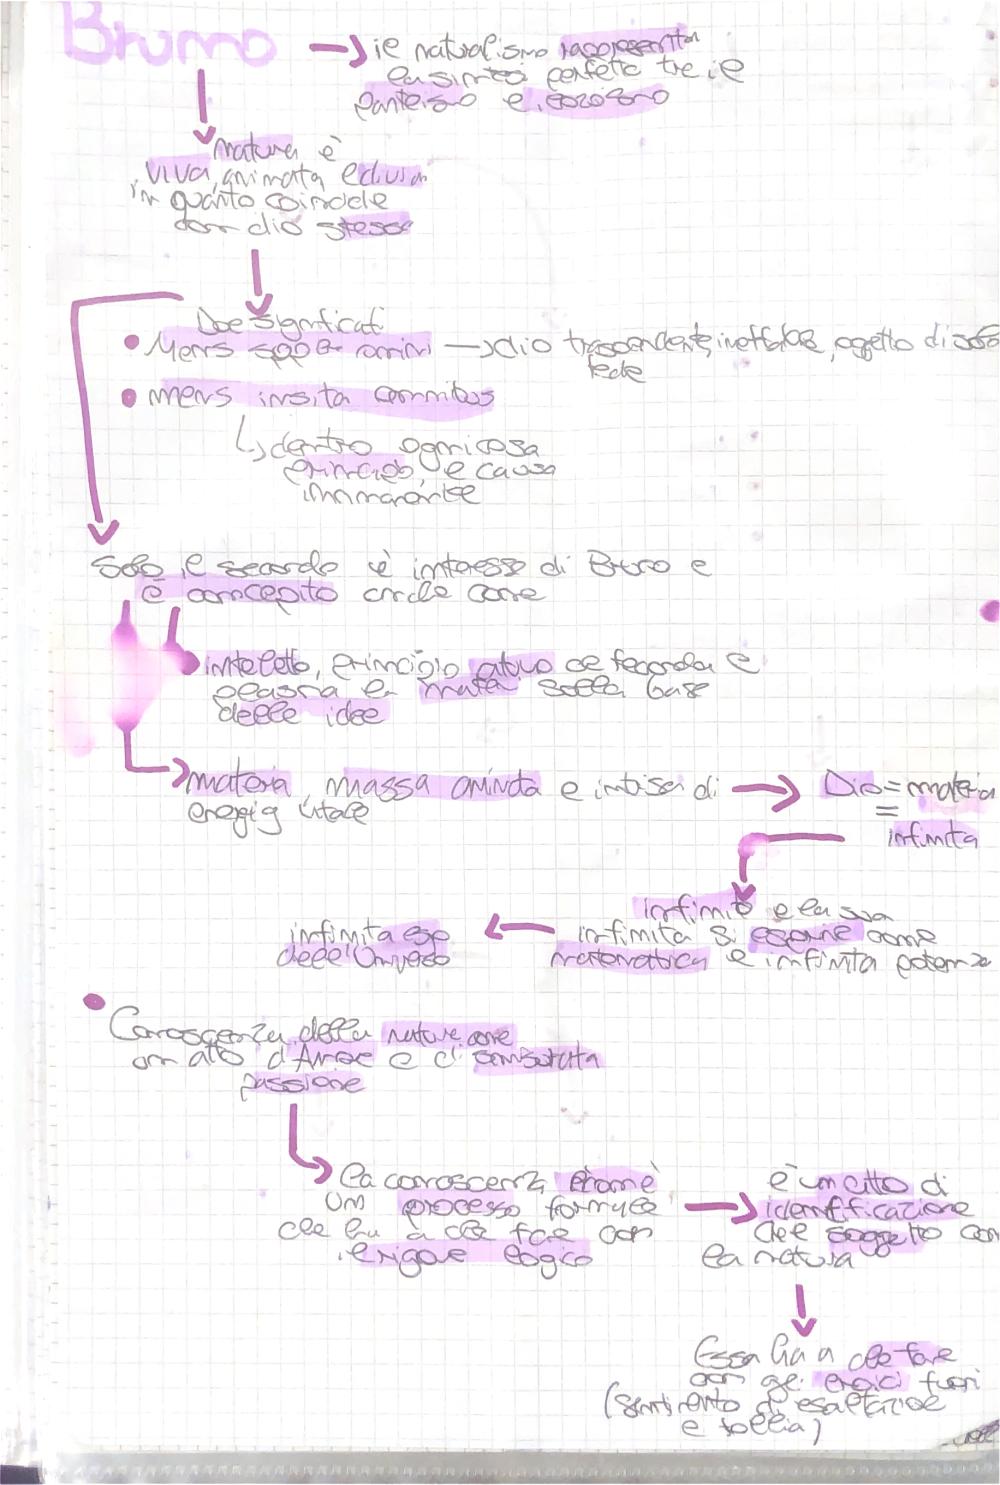 Bruno
il naturalismo rappresenta
la sintesi perfetta tra il
panteismo e
natura è
viva, animata e
in quanto coincide
con dio stesso
Due significati
Mens super omnia → dio trascendente, ineffabile, oggetto di
fede
mens insita omnibus
dentro ogni cosa
principio e causa
immanente
Solo il secondo è interesse di Bruno e
è concepito anche come
intelletto, principio attivo ce feconda e
plasma la sulla base
delle idee
materia, massa e intrisa di
energia vitale
Dio = materia
=
infinita
infinito e la sua
infinita si esprime come
matematica e infinita potenza
infinita
dell'universo
Conoscenza della natura come
un atto d'Amore e di
passione
la conoscenza
un processo formale
che ha a che fare con
il rigore logico
è un atto di
identificazione
del soggetto con
la natura
Essa ha a che fare
con gli eroici furori
(sentimento di esaltazione
e follia)